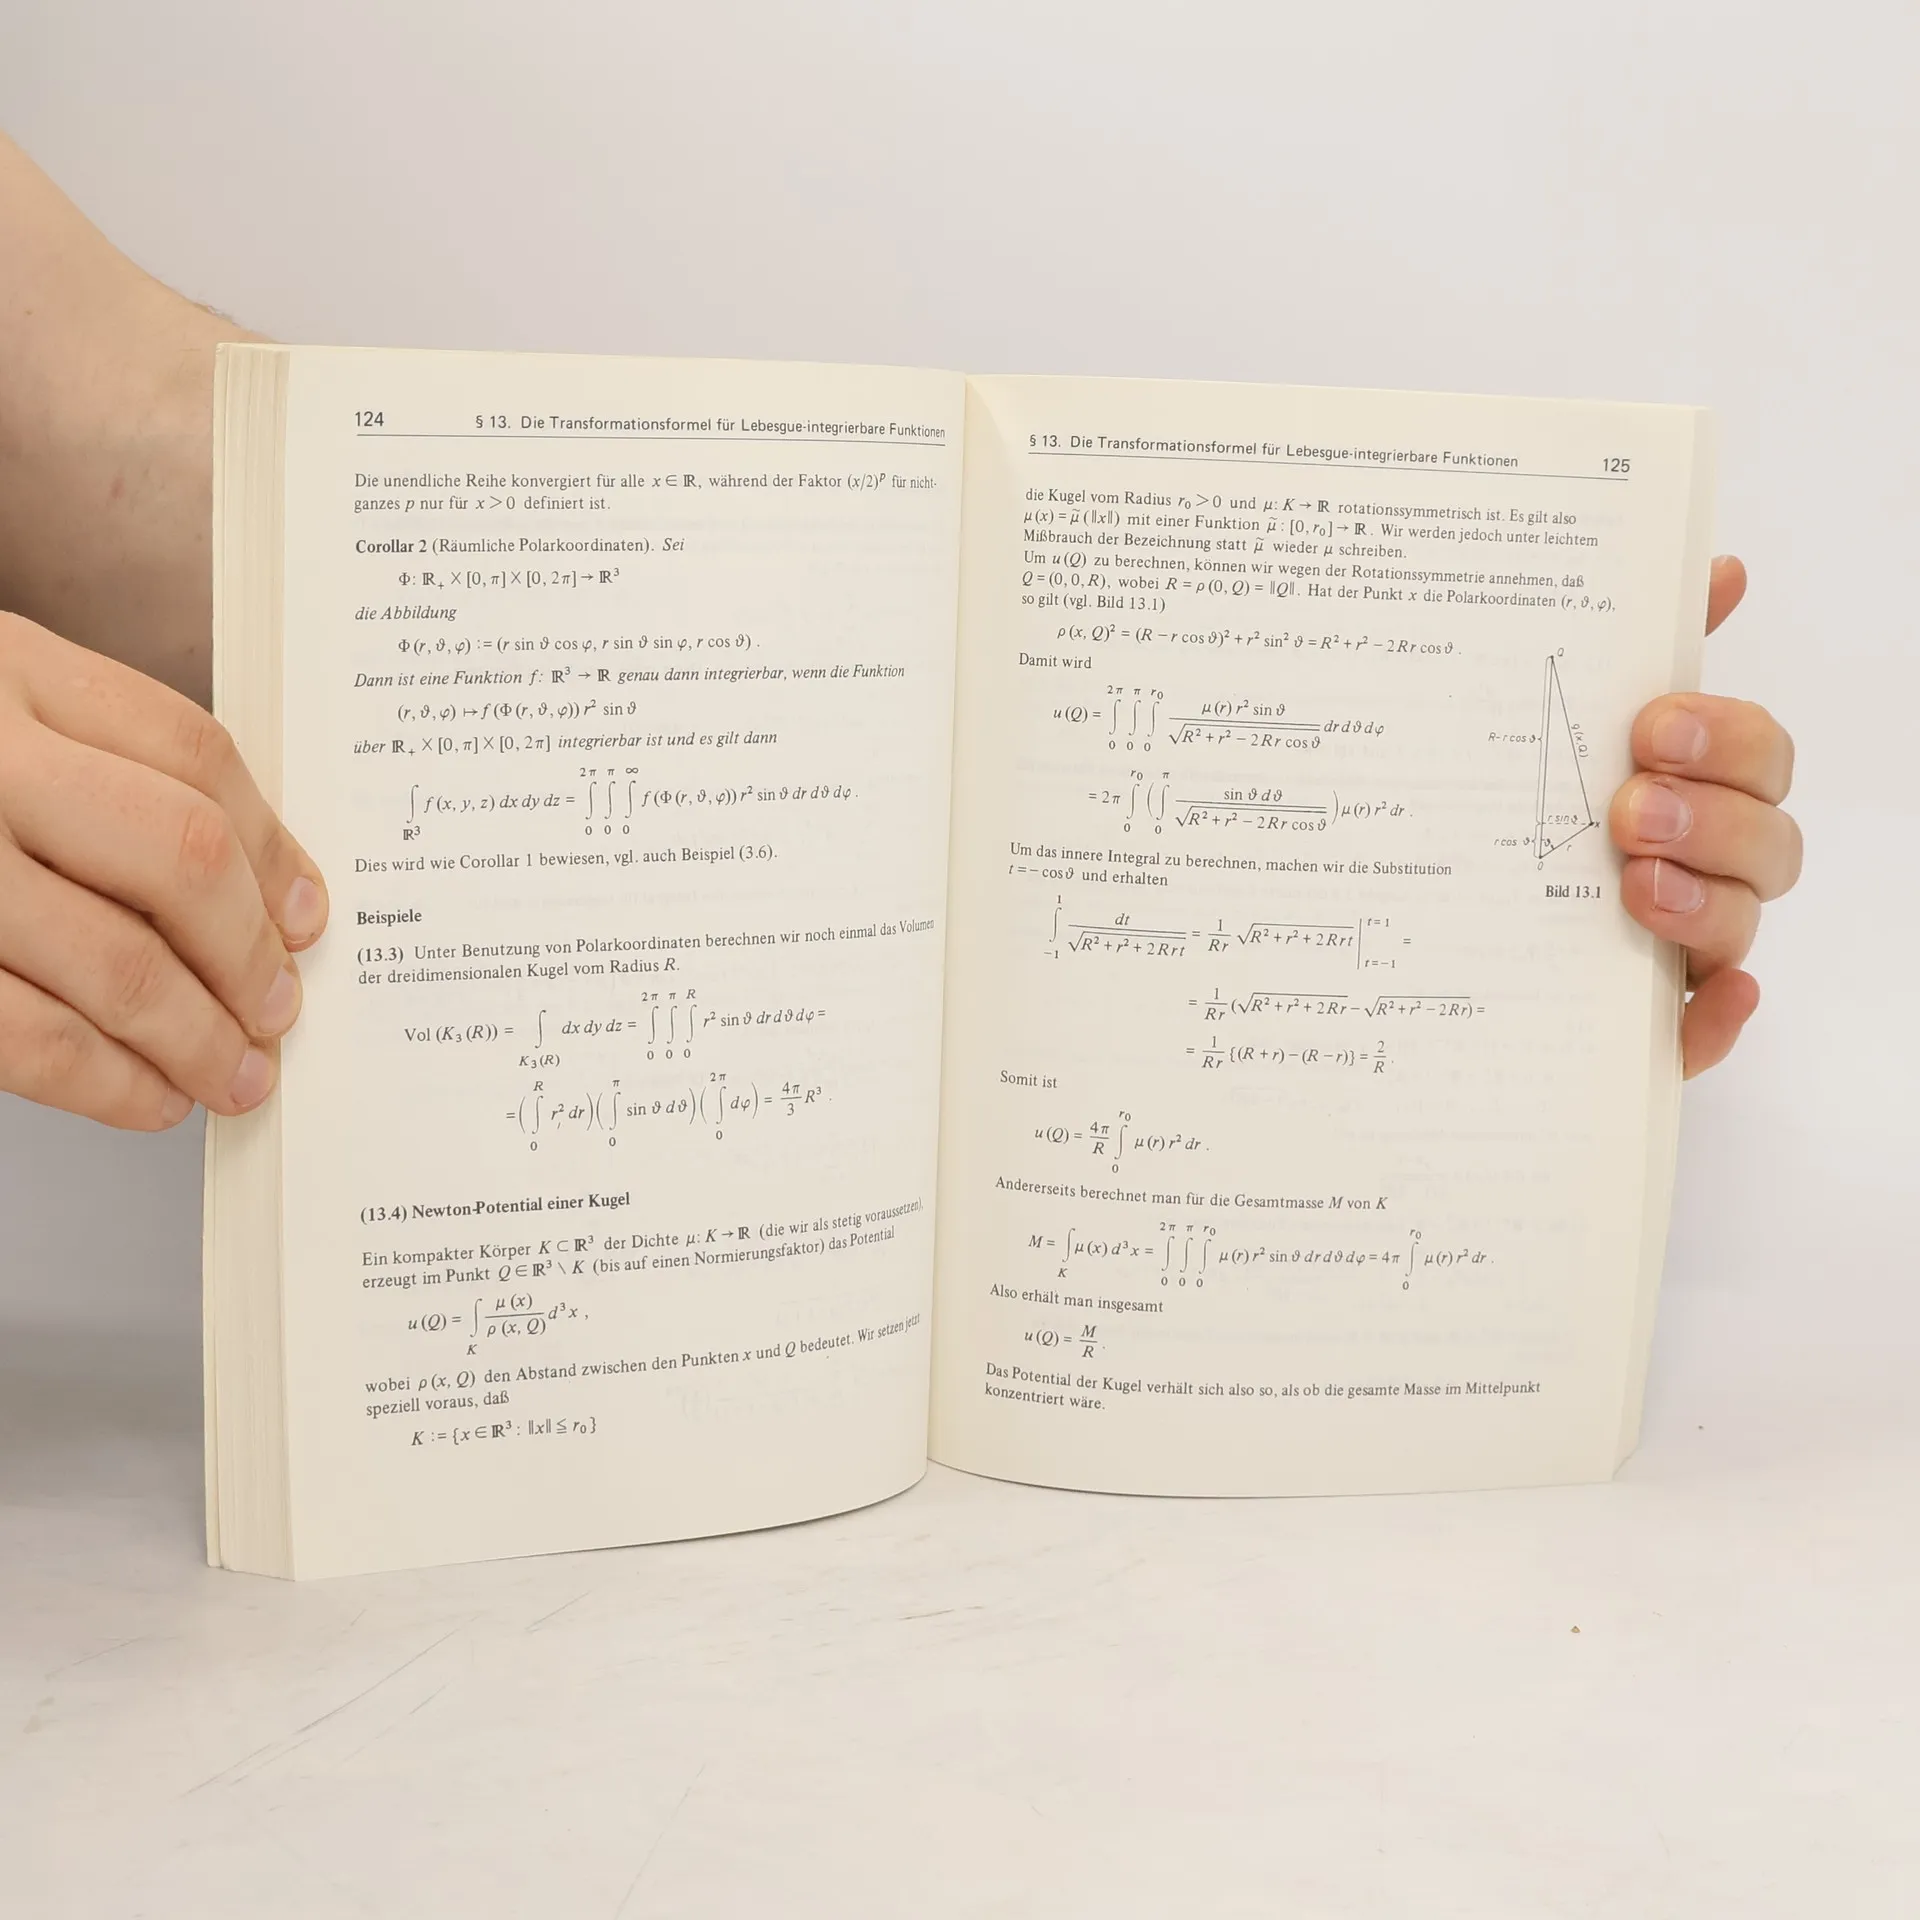 124
§ 13. Die Transformationsformel für Lebesgue-integrierbare Funktionen
Die unendliche Reihe konvergiert für alle x ∈ ℝ, während der Faktor (x/2)^p für nicht-
ganzes p nur für x > 0 definiert ist.
Corollar 2 (Räumliche Polarkoordinaten). Sei
Φ: ℝ₊ × [0, π] × [0, 2π] → ℝ³
die Abbildung
Φ (r, ϑ, φ) := (r sin ϑ cos φ, r sin ϑ sin φ, r cos ϑ) .
Dann ist eine Funktion f: ℝ³ → ℝ genau dann integrierbar, wenn die Funktion
(r, ϑ, φ) ↦ f (Φ (r, ϑ, φ)) r² sin ϑ
über ℝ₊ × [0, π] × [0, 2π] integrierbar ist und es gilt dann
∫_{ℝ³} f (x, y, z) dx dy dz = ∫_0^{2π} ∫_0^π ∫_0^∞ f (Φ (r, ϑ, φ)) r² sin ϑ dr dϑ dφ .
Dies wird wie Corollar 1 bewiesen, vgl. auch Beispiel (3.6).
Beispiele
(13.3) Unter Benutzung von Polarkoordinaten berechnen wir noch einmal das Volumen
der dreidimensionalen Kugel vom Radius R.
Vol (K₃ (R)) = ∫_{K₃(R)} dx dy dz = ∫_0^{2π} ∫_0^π ∫_0^R r² sin ϑ dr dϑ dφ =
= ( ∫_0^R r² dr ) ( ∫_0^π sin ϑ dϑ ) ( ∫_0^{2π} dφ ) = 4π/3 R³ .
(13.4) Newton-Potential einer Kugel
Ein kompakter Körper K ⊂ ℝ³ der Dichte μ: K → ℝ (die wir als stetig voraussetzen),
erzeugt im Punkt Q ∈ ℝ³ \ K (bis auf einen Normierungsfaktor) das Potential
u (Q) = ∫_K μ (x) / ρ (x, Q) d³x ,
wobei ρ (x, Q) den Abstand zwischen den Punkten x und Q bedeutet. Wir setzen jetzt
speziell voraus, daß
K := {x ∈ ℝ³ : ‖x‖ ≦ r₀}
§ 13. Die Transformationsformel für Lebesgue-integrierbare Funktionen
125
die Kugel vom Radius r₀ > 0 und μ: K → ℝ rotationssymmetrisch ist. Es gilt also
μ (x) = μ̃ (‖x‖) mit einer Funktion μ̃ : [0, r₀] → ℝ. Wir werden jedoch unter leichtem
Mißbrauch der Bezeichnung statt μ̃ wieder μ schreiben.
Um u (Q) zu berechnen, können wir wegen der Rotationssymmetrie annehmen, daß
Q = (0, 0, R), wobei R = ρ (0, Q) = ‖Q‖. Hat der Punkt x die Polarkoordinaten (r, ϑ, φ),
so gilt (vgl. Bild 13.1)
ρ (x, Q)² = (R − r cos ϑ)² + r² sin² ϑ = R² + r² − 2 R r cos ϑ .
Damit wird
u (Q) = ∫_0^{2π} ∫_0^π ∫_0^{r₀} μ (r) r² sin ϑ / √(R² + r² − 2 R r cos ϑ) dr dϑ dφ
= 2π ∫_0^{r₀} ( ∫_0^π sin ϑ dϑ / √(R² + r² − 2 R r cos ϑ) ) μ (r) r² dr .
Um das innere Integral zu berechnen, machen wir die Substitution
t = − cos ϑ und erhalten
∫_{−1}^1 dt / √(R² + r² + 2 R r t) = 1/(Rr) √(R² + r² + 2 R r t) |_{t=−1}^{t=1} =
= 1/(Rr) (√(R² + r² + 2 R r) − √(R² + r² − 2 R r)) =
= 1/(Rr) {(R + r) − (R − r)} = 2/R .
Somit ist
u (Q) = 4π/R ∫_0^{r₀} μ (r) r² dr .
Andererseits berechnet man für die Gesamtmasse M von K
M = ∫_K μ (x) d³x = ∫_0^{2π} ∫_0^π ∫_0^{r₀} μ (r) r² sin ϑ dr dϑ dφ = 4π ∫_0^{r₀} μ (r) r² dr .
Also erhält man insgesamt
u (Q) = M/R .
Das Potential der Kugel verhält sich also so, als ob die gesamte Masse im Mittelpunkt
konzentriert wäre.
Q
R−r cos ϑ
ρ(x,Q)
r sin ϑ
x
r cos ϑ
ϑ
r
0
Bild 13.1